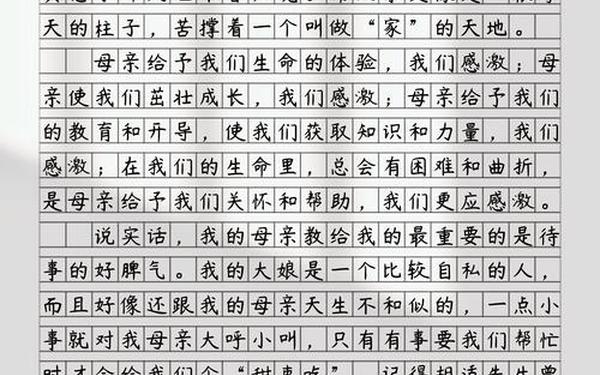 天的柱子，苦撑着一个叫做“家”的天地。
母亲给予我们生命的体验，我们感激；母
亲使我们茁壮成长，我们感激；母亲给予我们
的教育和开导，使我们获取知识和力量，我们
感激；在我们的生命里，总会有困难和曲折，
是母亲给予我们关怀和帮助，我们更应感激。
说实话，我的母亲教给我的最重要的是待
事的好脾气。我的大娘是一个比较自私的人，
而且好像还跟我的母亲天生不和似的，一点小
事就对我母亲大呼小叫，只有有事要我们帮忙
时才会给我们个“甜枣吃”